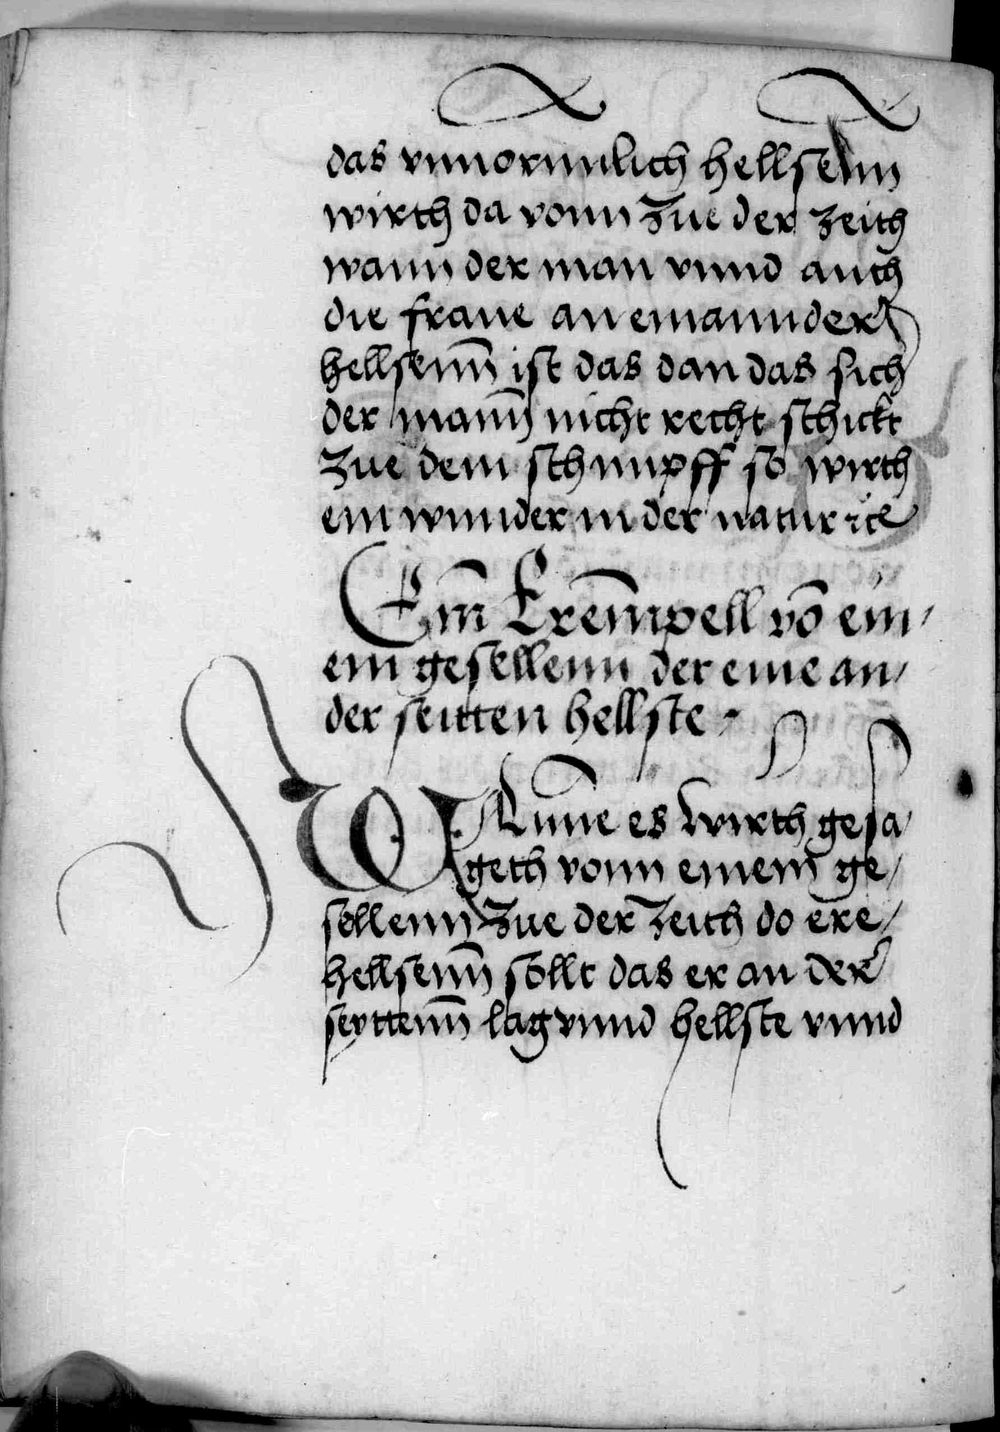 das vnnormlich hellsenn
wirth da vonn zue der zeith
wann der man vnnd auch
die fraue an emannder
hellsenn̄ ist das dan das sich
der mann̄ nicht recht schickt
zue dem schmpff so wirth
ein wunder in der natur ꝛce
Ein̄ Exem̄pell vō ein/
em gesellenn der eine an/
der seitten hellste
WAnne es wirth gesa/
geth vonn einem̄ ge/
sellenn zue der zeith do ere/
hellsenn̄ sollt das er an der
seyttenn̄ lag vnnd hellste vnnd